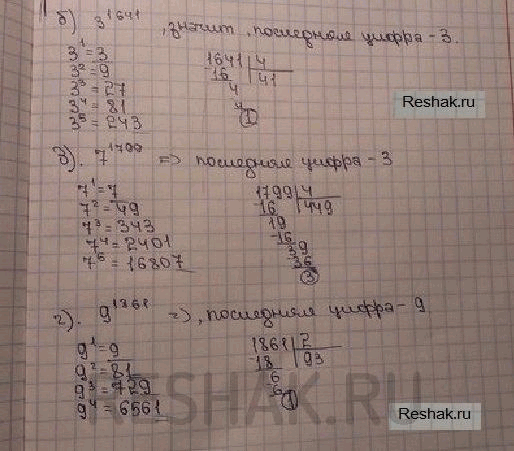 б) 3^1641 , значит, последняя цифра - 3.
3^1 = 3
3^2 = 9
3^3 = 27
3^4 = 81
3^5 = 243
1641 | 4
16 | 41
4
4
1
Reshak.ru
в). 7^1799 => последняя цифра - 3
7^1 = 7
7^2 = 49
7^3 = 343
7^4 = 2401
7^5 = 16807
1799 | 4
16 | 449
19
16
39
36
3
г). 9^1861 =>, последняя цифра - 9
9^1 = 9
9^2 = 81
9^3 = 729
9^4 = 6561
1861 | 2
18 | 93
6
6
1
RESHAK.RU
Reshak.ru